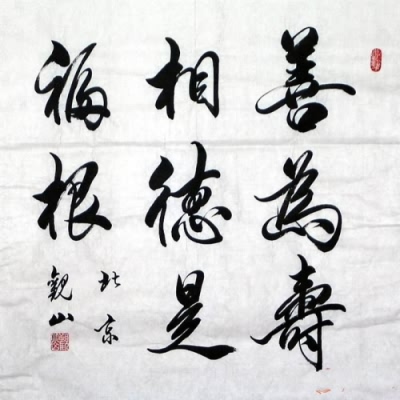 善為壽
相德是
福根
北京
觀山